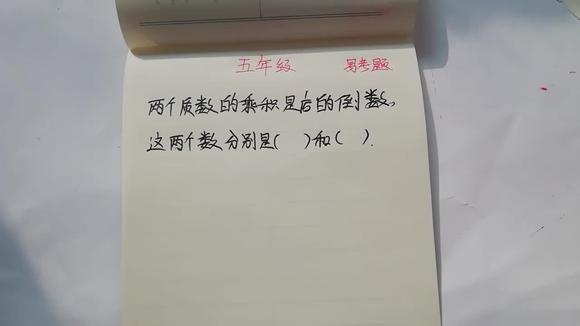 五年级 易考题
两个质数的乘积是后的倒数,
这两个数分别是( )和( ).